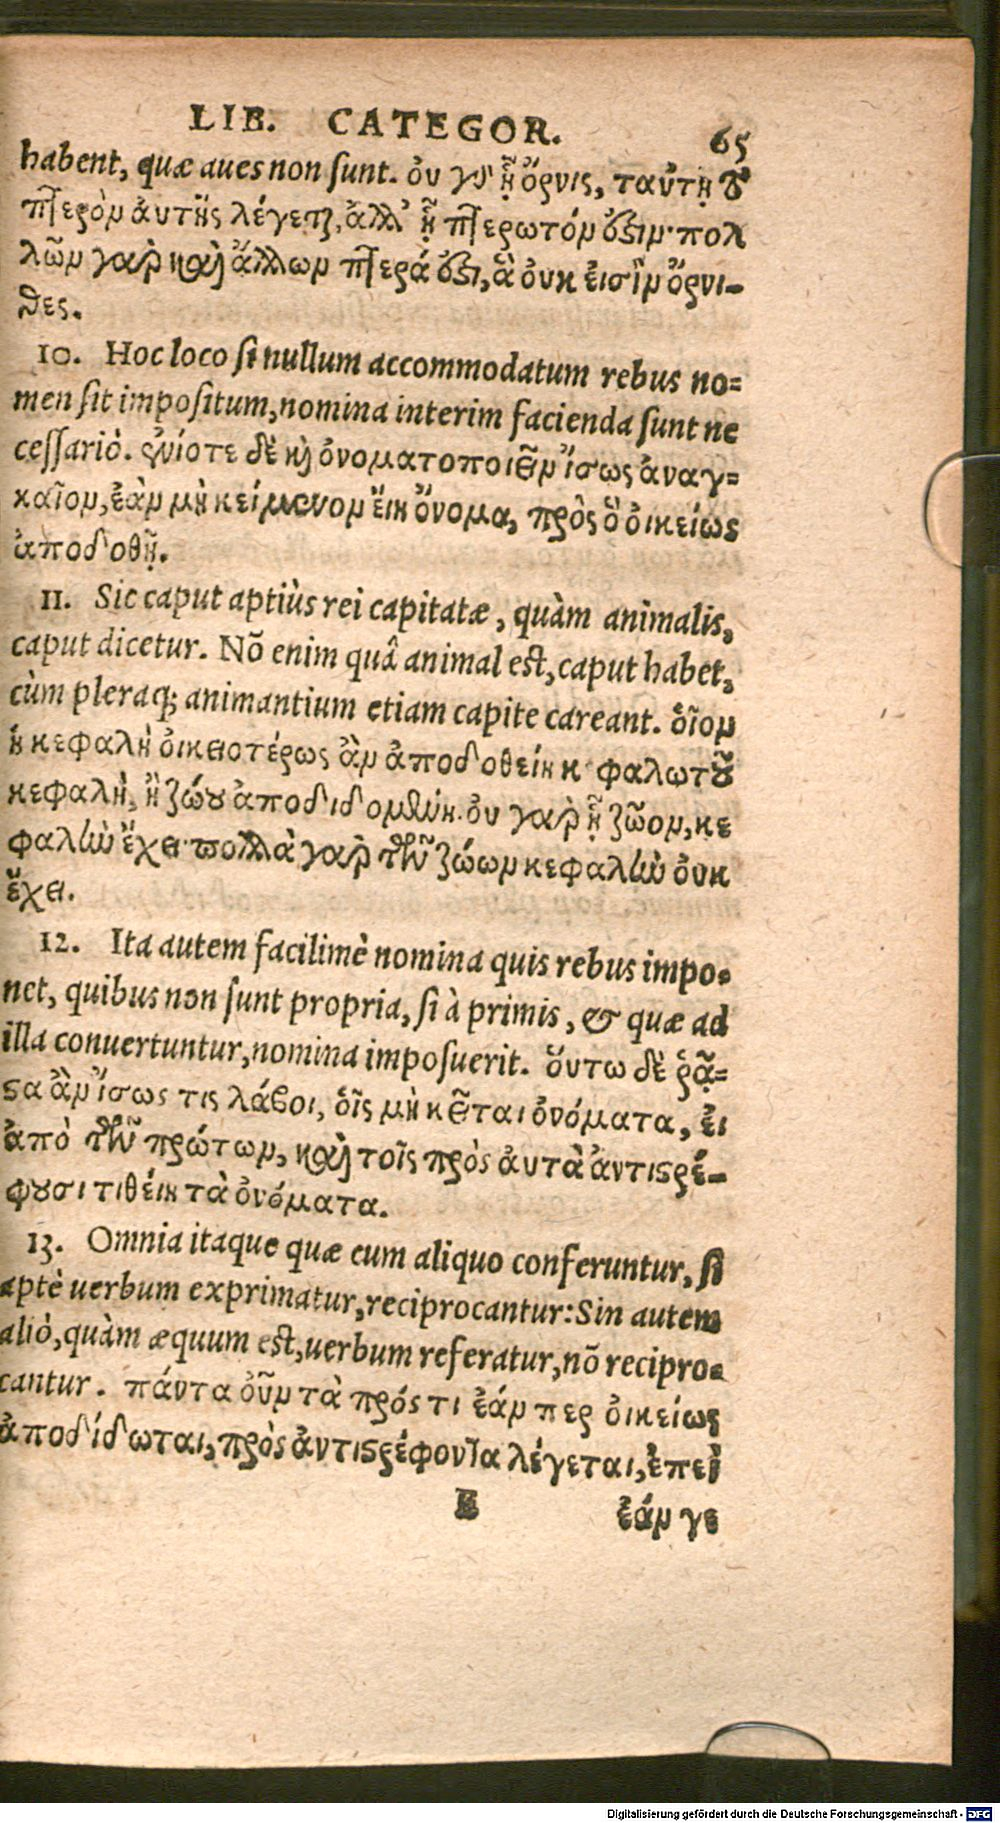 LIB. CATEGOR. 65
habent, quæ aues non sunt. ὀυ γὸ ᾗ ὄρνις, ταύτῃ τὸ
πτερὸν ἀυτῆς λέγεται, ἀλλ' ᾗ πτερωτόν ὅξιν· πολ
λῶν γαρ καὶ ἄλλων πτερά ὅξι, ἃ ὀυκ ἐισὶν ὄρνι-
θες.
10. Hoc loco si nullum accommodatum rebus no=
men sit impositum, nomina interim facienda sunt ne
cessariò. ἐνίοτε δὲ κὶ ὀνοματοποιεῖν ἴσως ἀναγ=
καῖον, ἐὰν μὴ κείμενον ἔιη ὄνομα, πρὸς ὃ ὀικείως
ἀποδοθῇ.
11. Sic caput aptiùs rei capitatæ, quàm animalis,
caput dicetur. Nō enim quâ animal est, caput habet,
cùm pleraq; animantium etiam capite careant. ὁῖον
ἡ κεφαλὴ ὀικειοτέρως ἂν ἀποδοθείη κ φαλωτοῦ
κεφαλὴ, ἢ ζώου ἀποδιδομένη. ὀυ γαρ ᾗ ζῶον, κε
φαλὴν ἔχει· πολλὰ γαρ τῶν ζώων κεφαλὴν ὀυκ
ἔχει.
12. Ita autem facilimè nomina quis rebus impo=
net, quibus non sunt propria, si à primis, & quæ ad
illa conuertuntur, nomina imposuerit. ὅυτω δὲ ῥᾷ=
ϛα ἂν ἴσως τις λάβοι, ὁῖς μὴ κεῖται ὀνόματα, ἐι
ἀπὸ τῶν πρώτων, καὶ τοῖς πρὸς ἀυτὰ ἀντιϛρέ-
φουσι τιθείη τὰ ὀνόματα.
13. Omnia itaque quæ cum aliquo conferuntur, si
aptè uerbum exprimatur, reciprocantur: Sin autem
aliò, quàm æquum est, uerbum referatur, nō recipro=
cantur. πάντα ὀῦν τὰ πρός τι ἐάν περ ὀικείως
ἀποδίδωται, πρὸς ἀντιϛρέφοντα λέγεται, ἐπεὶ
E ἐάν γε
Digitalisierung gefördert durch die Deutsche Forschungsgemeinschaft - DFG